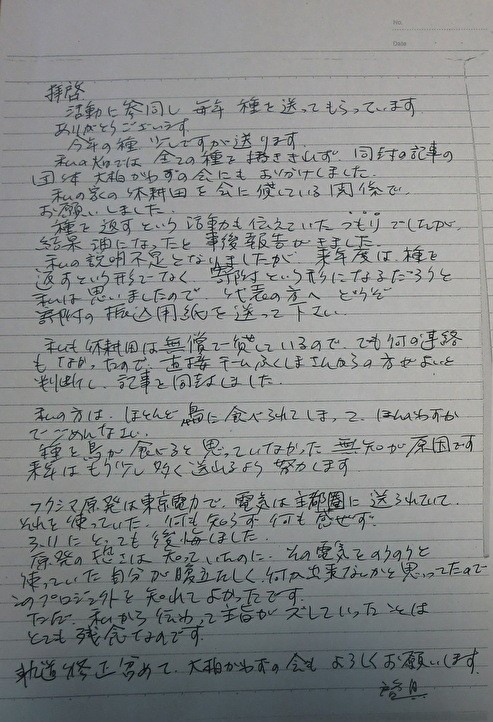 No.
Date
拝啓
活動に参同し 毎年 種を送ってもらっています
ありがとうございます
今年の種 少しですが送ります
私の畑では 全ての種を播ききれず 同封の記事の
団体 大相かわずの会にもおすそわけしました
私の家の休耕田を会に貸している関係で
お願いしました
種を返すという活動も伝えていたつもりでしたが
結果 油になったと事後報告がきました
私の説明不足となりましたが 来年度は種を
返すという形でなく 寄附という形になるだろうと
私は思いましたので 代表の方へ どうぞ
寄附の振込用紙を送って下さい
私も休耕田は無償で貸しているので でも何の連絡
もなかったので 直接チームふくしまさんからの方がよいと
判断し、記事と同封しました
私の方は、ほとんど鳥に食べられてしまって、ほんのわずか
でごめんなさい
種を鳥が食べると思っていなかった 無知が原因です
来年はもう少し多く送れるよう努力します
フクシマ原発は東京電力で、電気は首都圏に送られていて
それを使っていた 何も知らず何も感ぜず
3.11にとっても後悔しました
原発の恐さは知っていたのに、その電気をのうのうと
使っていた自分が腹立たしく 何か出来ないかと思ってたので
このプロジェクトを知れてよかったです
ただ、私から伝わって主旨がズレていったことは
とても残念なのです
軌道修正含めて、大相かわずの会も よろしくお願いします